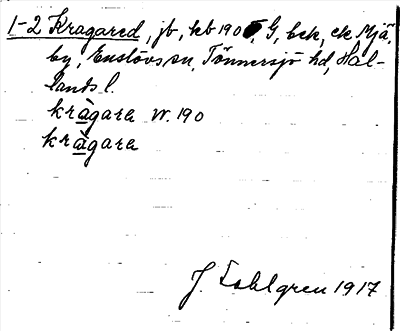 1-2 Kragared, jb, kb 190, G, bek, ek Mjä-
by, Enslövs sn, Tönnersjö hd, Hal-
lands l.
kràgara W. 190
kràgara
J. Sahlgren 1917